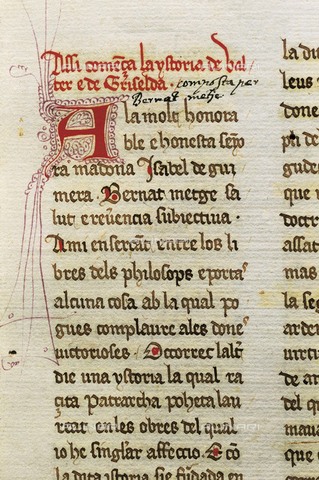 Assi comẽça la ystoria de val/
ter e de Griselda. composta per
Bernat metge
A la molt honora
ble e honesta senyo
ra madona Isabel de gui
mera. Bernat metge sa
lut e reũencia subiectiua.
Ami en sercãt entre los li
bres dels philosops e poetas
alcuna cosa ab la qual po
gues complaure ales dones
uictorioses. Ocorrec laltr
die una ystoria la qual ra
cita Patrarcha poheta lau
reat en les obres del qual
io he singlar affeccio. E cõ
la dita istoria sie fũdada en
la du
leus
done
pa de
gude
que
doctr
assat
mas
la seg
arden
uirtu
de ar
del q
maua
que